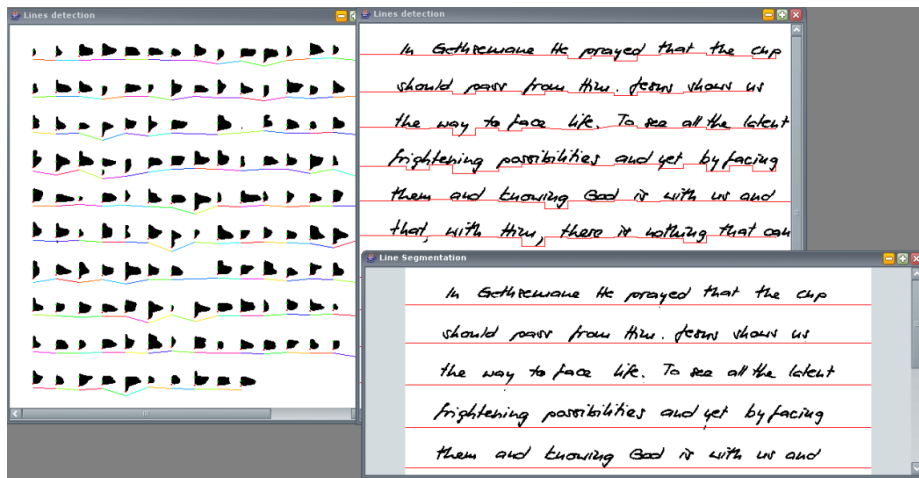 Lines detection
Lines detection
In Gethsemane He prayed that the cup
should pass from Him. Jesus shows us
the way to face life. To see all the latent
frightening possibilities and yet by facing
them and knowing God is with us and
that, with Him, there is nothing that can
Line Segmentation
In Gethsemane He prayed that the cup
should pass from Him. Jesus shows us
the way to face life. To see all the latent
frightening possibilities and yet by facing
them and knowing God is with us and